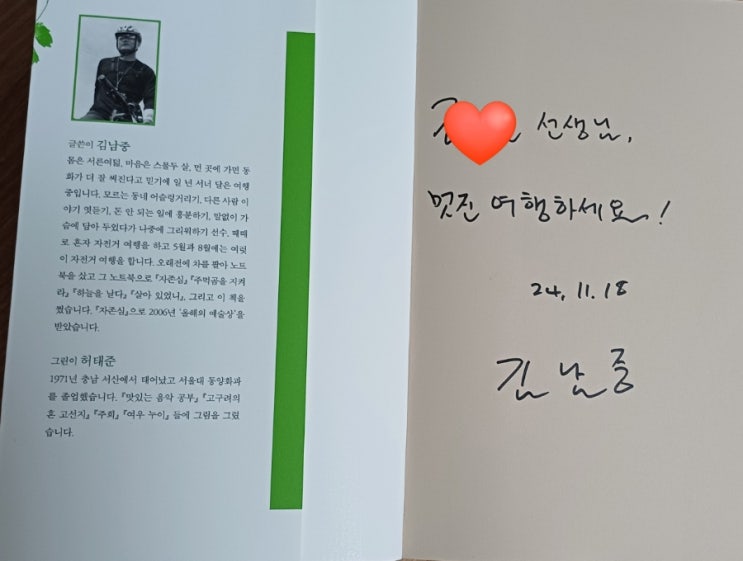 글쓴이 김남중
몸은 서른여덟, 마음은 스물두 살, 먼 곳에 가면 동
화가 더 잘 써진다고 믿기에 일 년 서너 달은 여행
중입니다. 모르는 동네 어슬렁거리기, 다른 사람 이
야기 엿듣기, 돈 안 되는 일에 흥분하기, 말없이 가
슴에 담아 두었다가 나중에 그리워하기 선수. 때때
로 혼자 자전거 여행을 하고 5월과 8월에는 여럿
이 자전거 여행을 합니다. 오래전에 차를 팔아 노트
북을 샀고 그 노트북으로 『자존심』 『주먹곰을 지켜
라』 『하늘을 날다』 『살아 있었니』, 그리고 이 책을
썼습니다. 『자존심』으로 2006년 '올해의 예술상'을
받았습니다.
그린이 허태준
1971년 충남 서산에서 태어났고 서울대 동양화과
를 졸업했습니다. 『맛있는 음악 공부』 『고구려의
혼 고선지』 『주희』 『여우 누이』 들에 그림을 그렸
습니다.
선생님,
멋진 여행하세요!
24. 11. 18
김남중